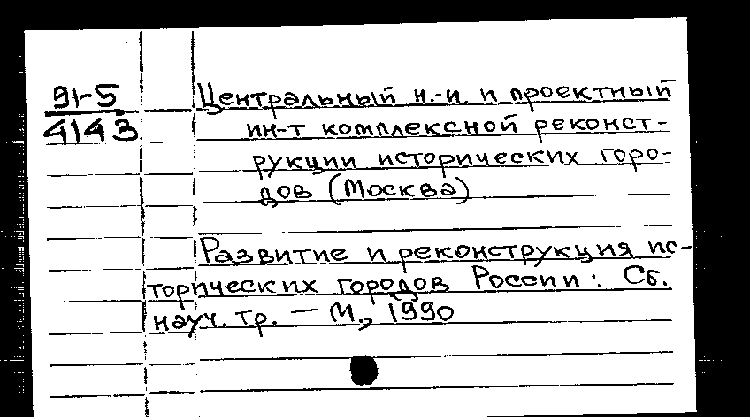 91-5
4143
Центральный н.-и. и проектный
ин-т комплексной реконст-
рукции исторических горо-
дов (Москва)
Развитие и реконструкция ис-
торических городов России: Сб.
науч. тр. — М., 1990